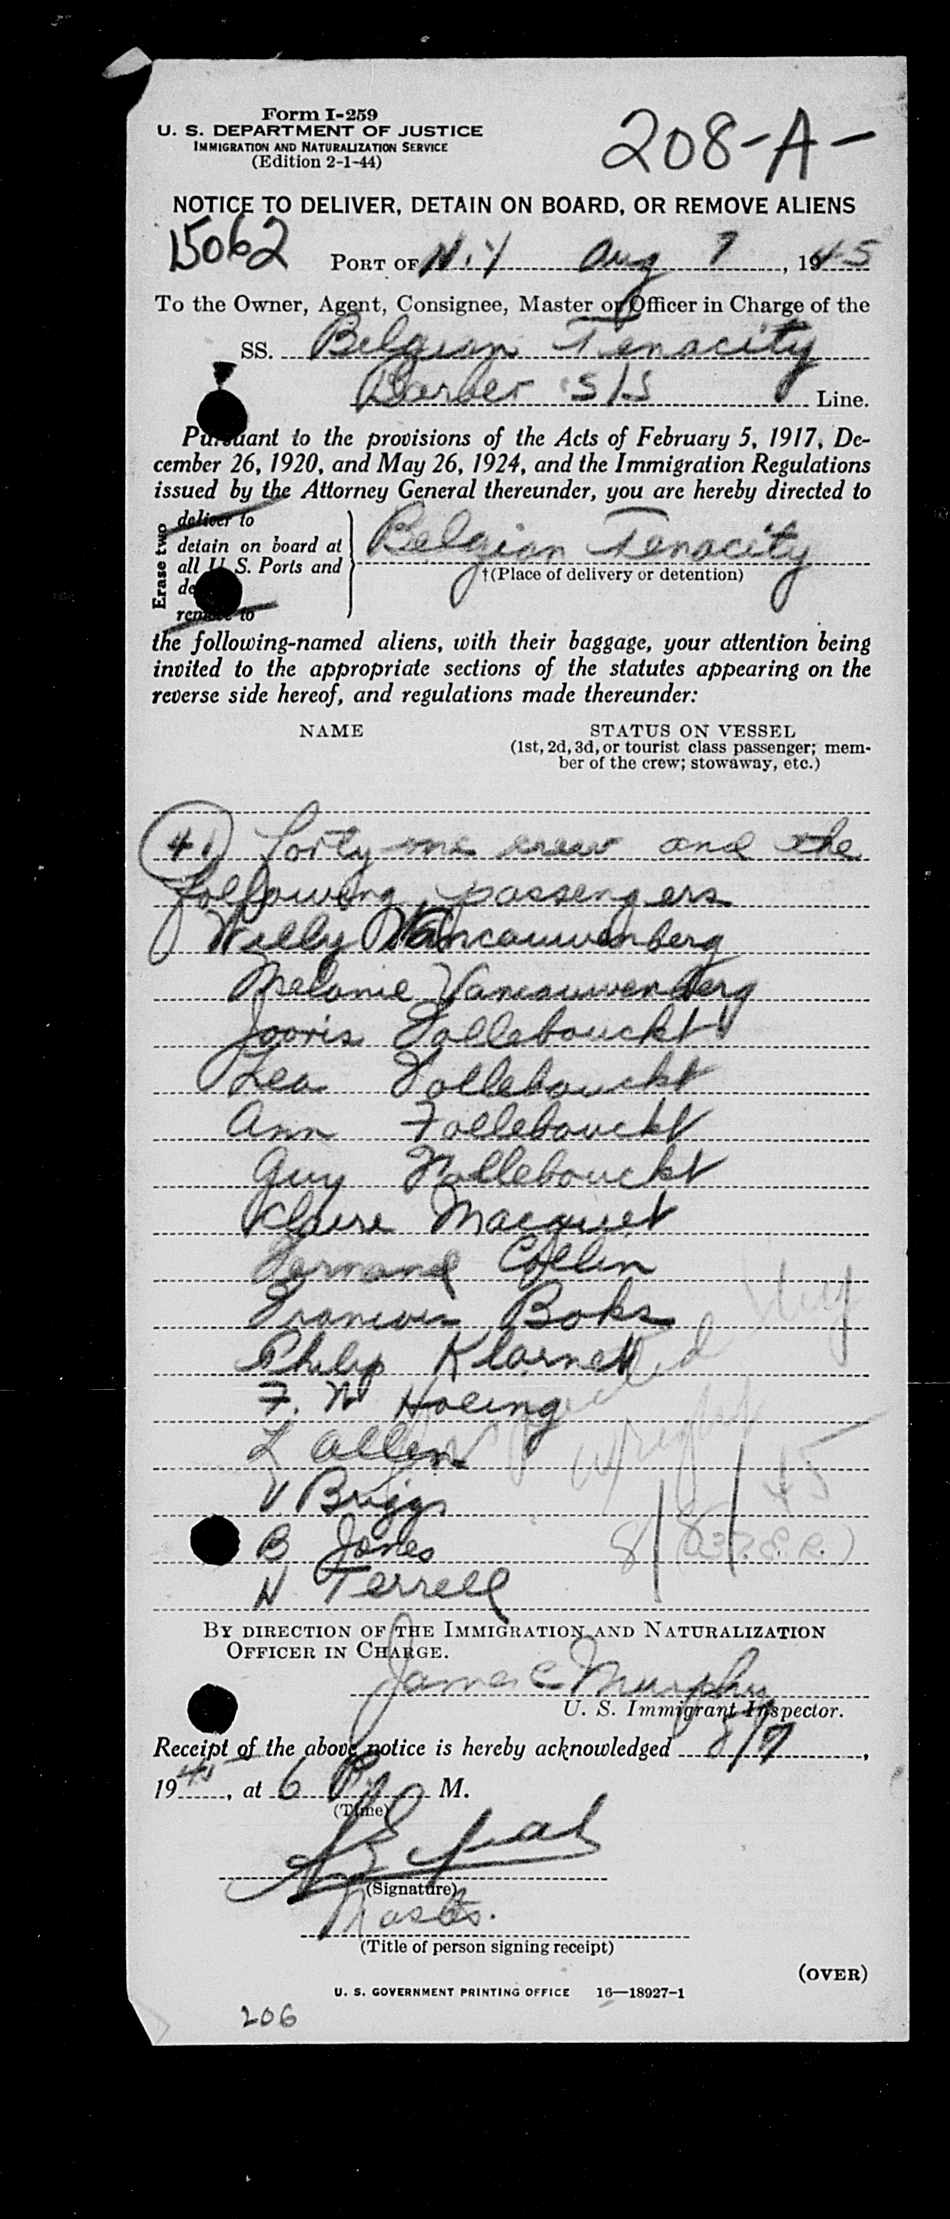 Form I-259
U. S. DEPARTMENT OF JUSTICE
IMMIGRATION AND NATURALIZATION SERVICE
(Edition 2-1-44)
208-A-
NOTICE TO DELIVER, DETAIN ON BOARD, OR REMOVE ALIENS
15062
PORT OF N.Y Aug 7, 1945
To the Owner, Agent, Consignee, Master or Officer in Charge of the
SS. Belgian Tenacity
Barber S/S Line.
Pursuant to the provisions of the Acts of February 5, 1917, De-
cember 26, 1920, and May 26, 1924, and the Immigration Regulations
issued by the Attorney General thereunder, you are hereby directed to
Erase two
deliver to
detain on board at
all U. S. Ports and
de
remove to
Belgian Tenacity
†(Place of delivery or detention)
the following-named aliens, with their baggage, your attention being
invited to the appropriate sections of the statutes appearing on the
reverse side hereof, and regulations made thereunder:
NAME
STATUS ON VESSEL
(1st, 2d, 3d, or tourist class passenger; mem-
ber of the crew; stowaway, etc.)
41 forty one crew and the
following passengers
Willy Vancauwenberg
Melanie Vancauwenberg
Jooris Follebouckt
Lea Follebouckt
Ann Follebouckt
Guy Follebouckt
Claire Macquet
Fernand Collin
Francois Boks
Philip Klarnett
F. W Holing
L Allen
V Briggs
B Jones
N Terrell
BY DIRECTION OF THE IMMIGRATION AND NATURALIZATION
OFFICER IN CHARGE.
James Murphy
U. S. Immigrant Inspector.
Receipt of the above notice is hereby acknowledged 8/7,
1945, at 6 P M.
(Time)
(Signature)
Master.
(Title of person signing receipt)
(OVER)
U. S. GOVERNMENT PRINTING OFFICE 16—18927-1
206